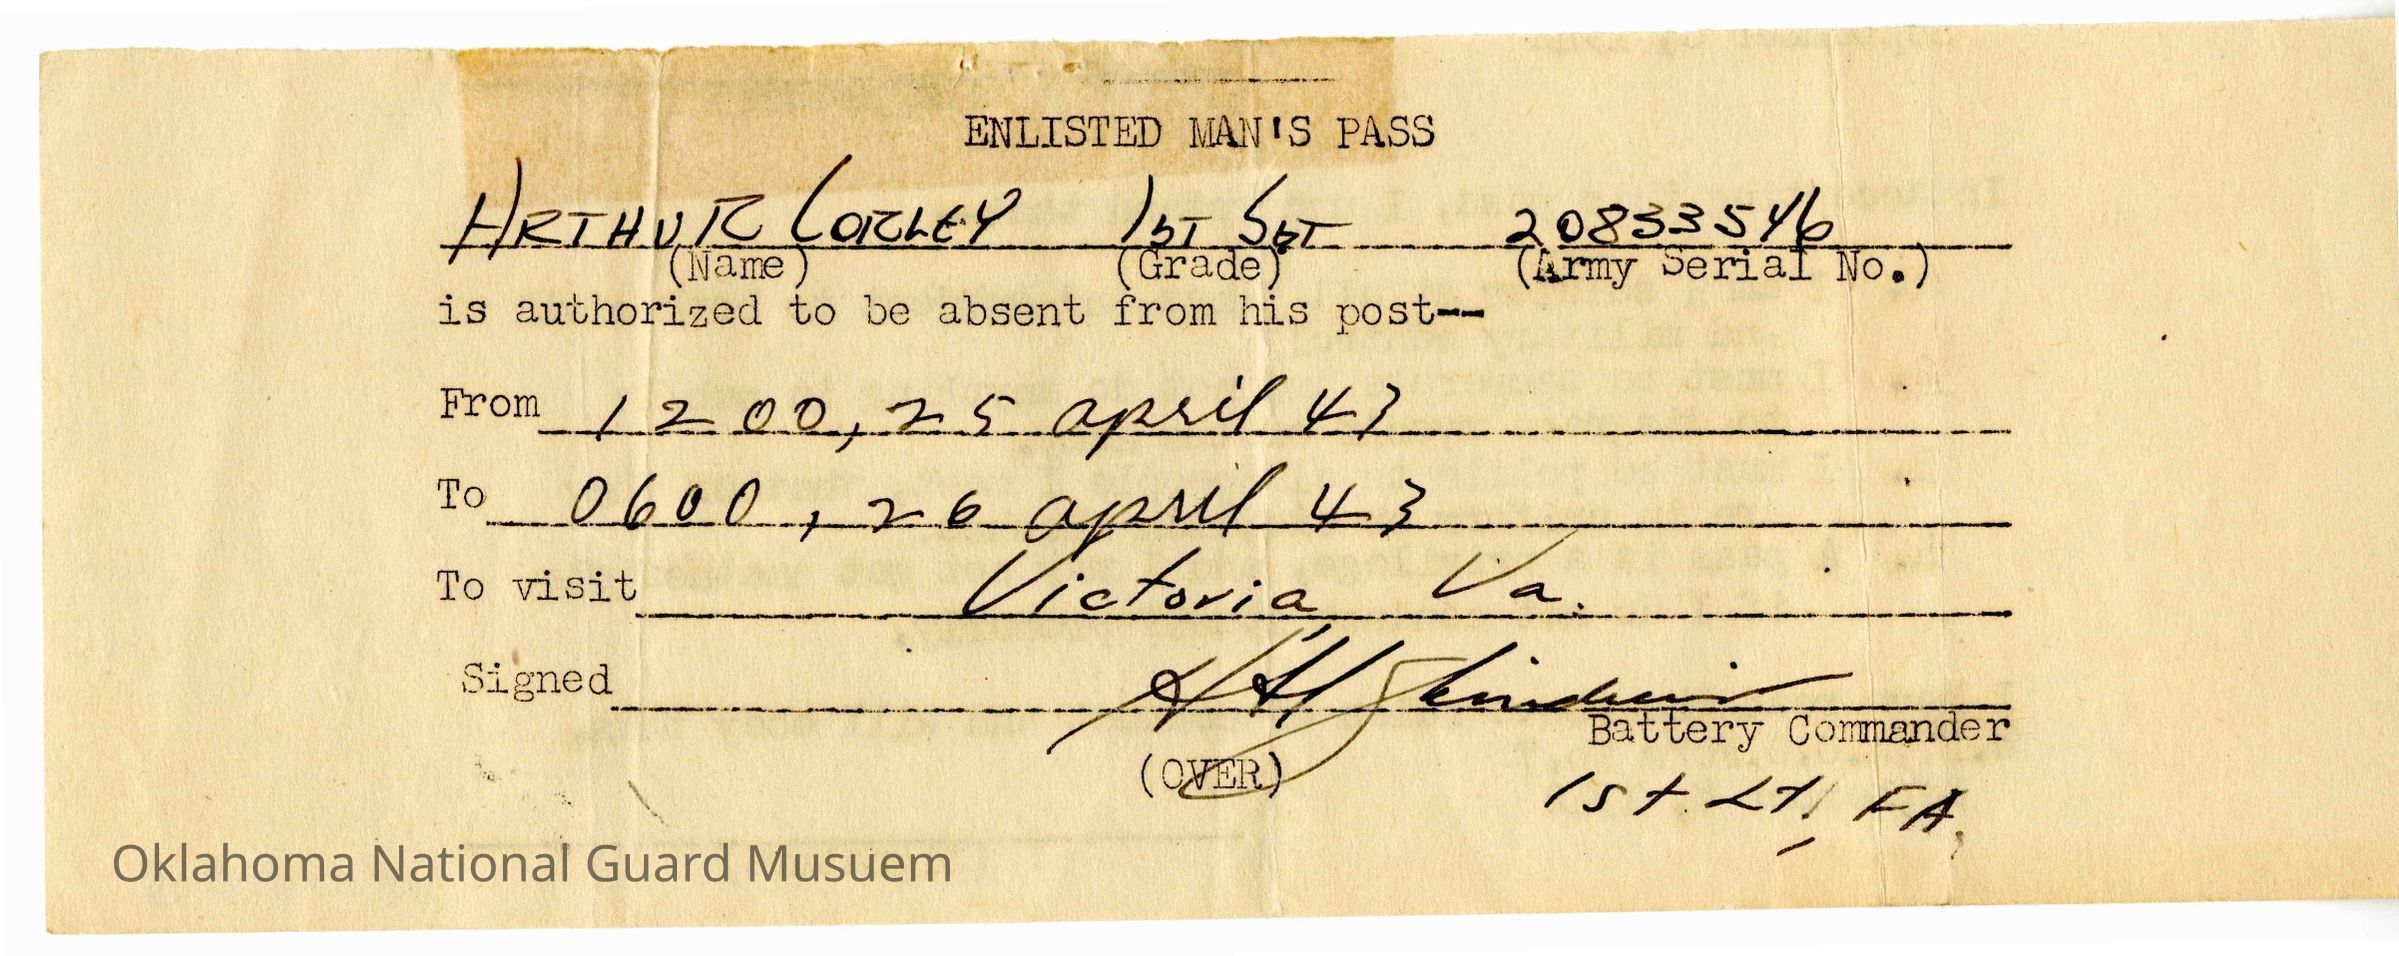 ENLISTED MAN'S PASS
ARTHUR CORLEY 1ST SGT 20833546
(Name) (Grade) (Army Serial No.)
is authorized to be absent from his post--
From 1200, 25 april 43
To 0600, 26 april 43
To visit Victoria Va.
Signed
Battery Commander
(OVER)
1st Lt, FA.
Oklahoma National Guard Musuem